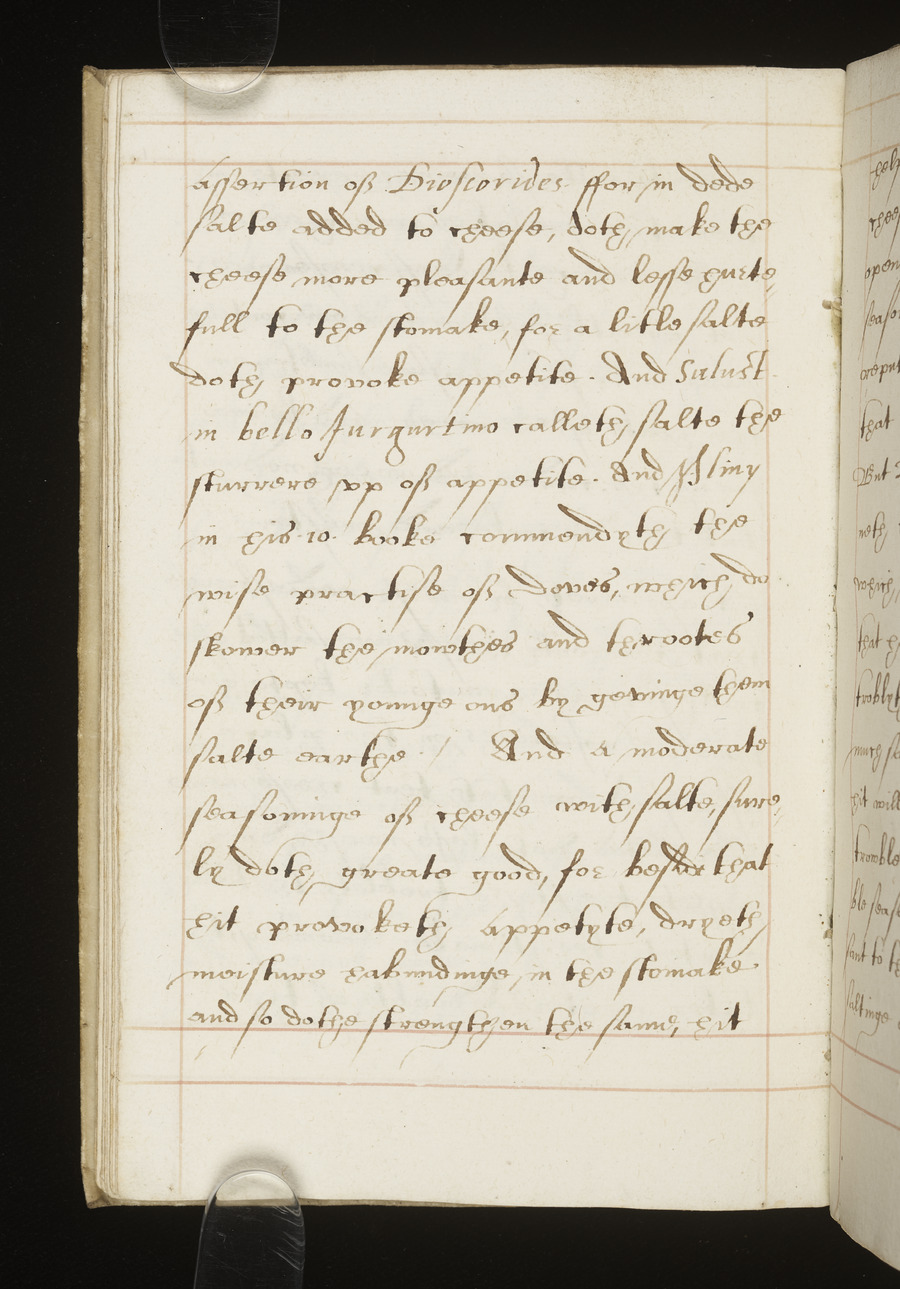 assertion of Dioscorides. ffor in dede
salte added to cheese, doth make the
cheese more pleasante and lesse hurte,
full to the stomake, for a litle salte
doth provoke appetite. And Salust.
in bello Jurgurtino calleth salte the
sturrere vp of appetite. And Pliny
in his .10. booke commendyth the
wise practise of doves, which do
skower the mowthes and throotes
of their younge ons by gevinge them
salte earthe. / And a moderate
seasoninge of cheese with salte, sure,
ly doth greate good, for beside that
hit provoketh appetyte, dryeth
moisture habundinge in the stomake
and so dothe strengthen the same, hit
help
chee
open
seaso
reput
that
But
neth
which
that h
trobly
much sa
hit will
trowble
ble seas
sant to th
saltinge